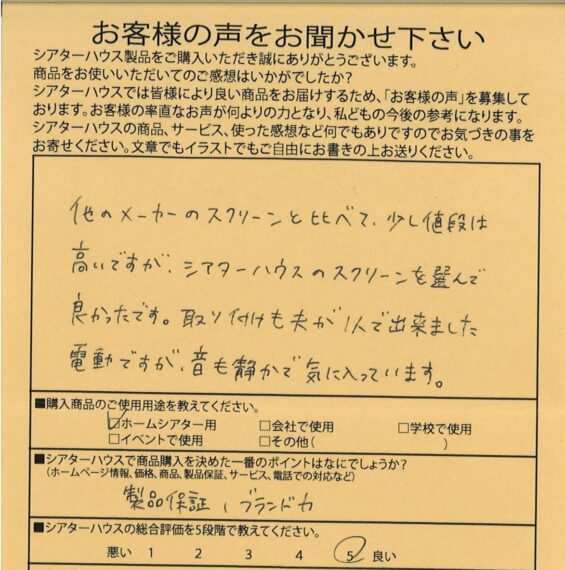 お客様の声をお聞かせ下さい
シアターハウス製品をご購入いただき誠にありがとうございます。
商品をお使いいただいてのご感想はいかがでしたか?
シアターハウスでは皆様により良い商品をお届けするため、「お客様の声」を募集して
おります。お客様の率直なお声が何よりの力となり、私どもの今後の参考になります。
シアターハウスの商品、サービス、使った感想など何でもありですのでお気づきの事を
お寄せください。文章でもイラストでもご自由にお書きの上お送りください。
他のメーカーのスクリーンと比べて、少し値段は
高いですが、シアターハウスのスクリーンを選んで
良かったです。取り付けも夫が1人で出来ました
電動ですが、音も静かで気に入っています。
■購入商品のご使用用途を教えてください。
☑ホームシアター用 □会社で使用 □学校で使用
□イベントで使用 □その他( )
■シアターハウスで商品購入を決めた一番のポイントはなにでしょうか?
(ホームページ情報、価格、商品、製品保証、サービス、電話での対応など)
製品保証、ブランド力
■シアターハウスの総合評価を5段階で教えてください。
悪い 1 2 3 4 5 良い